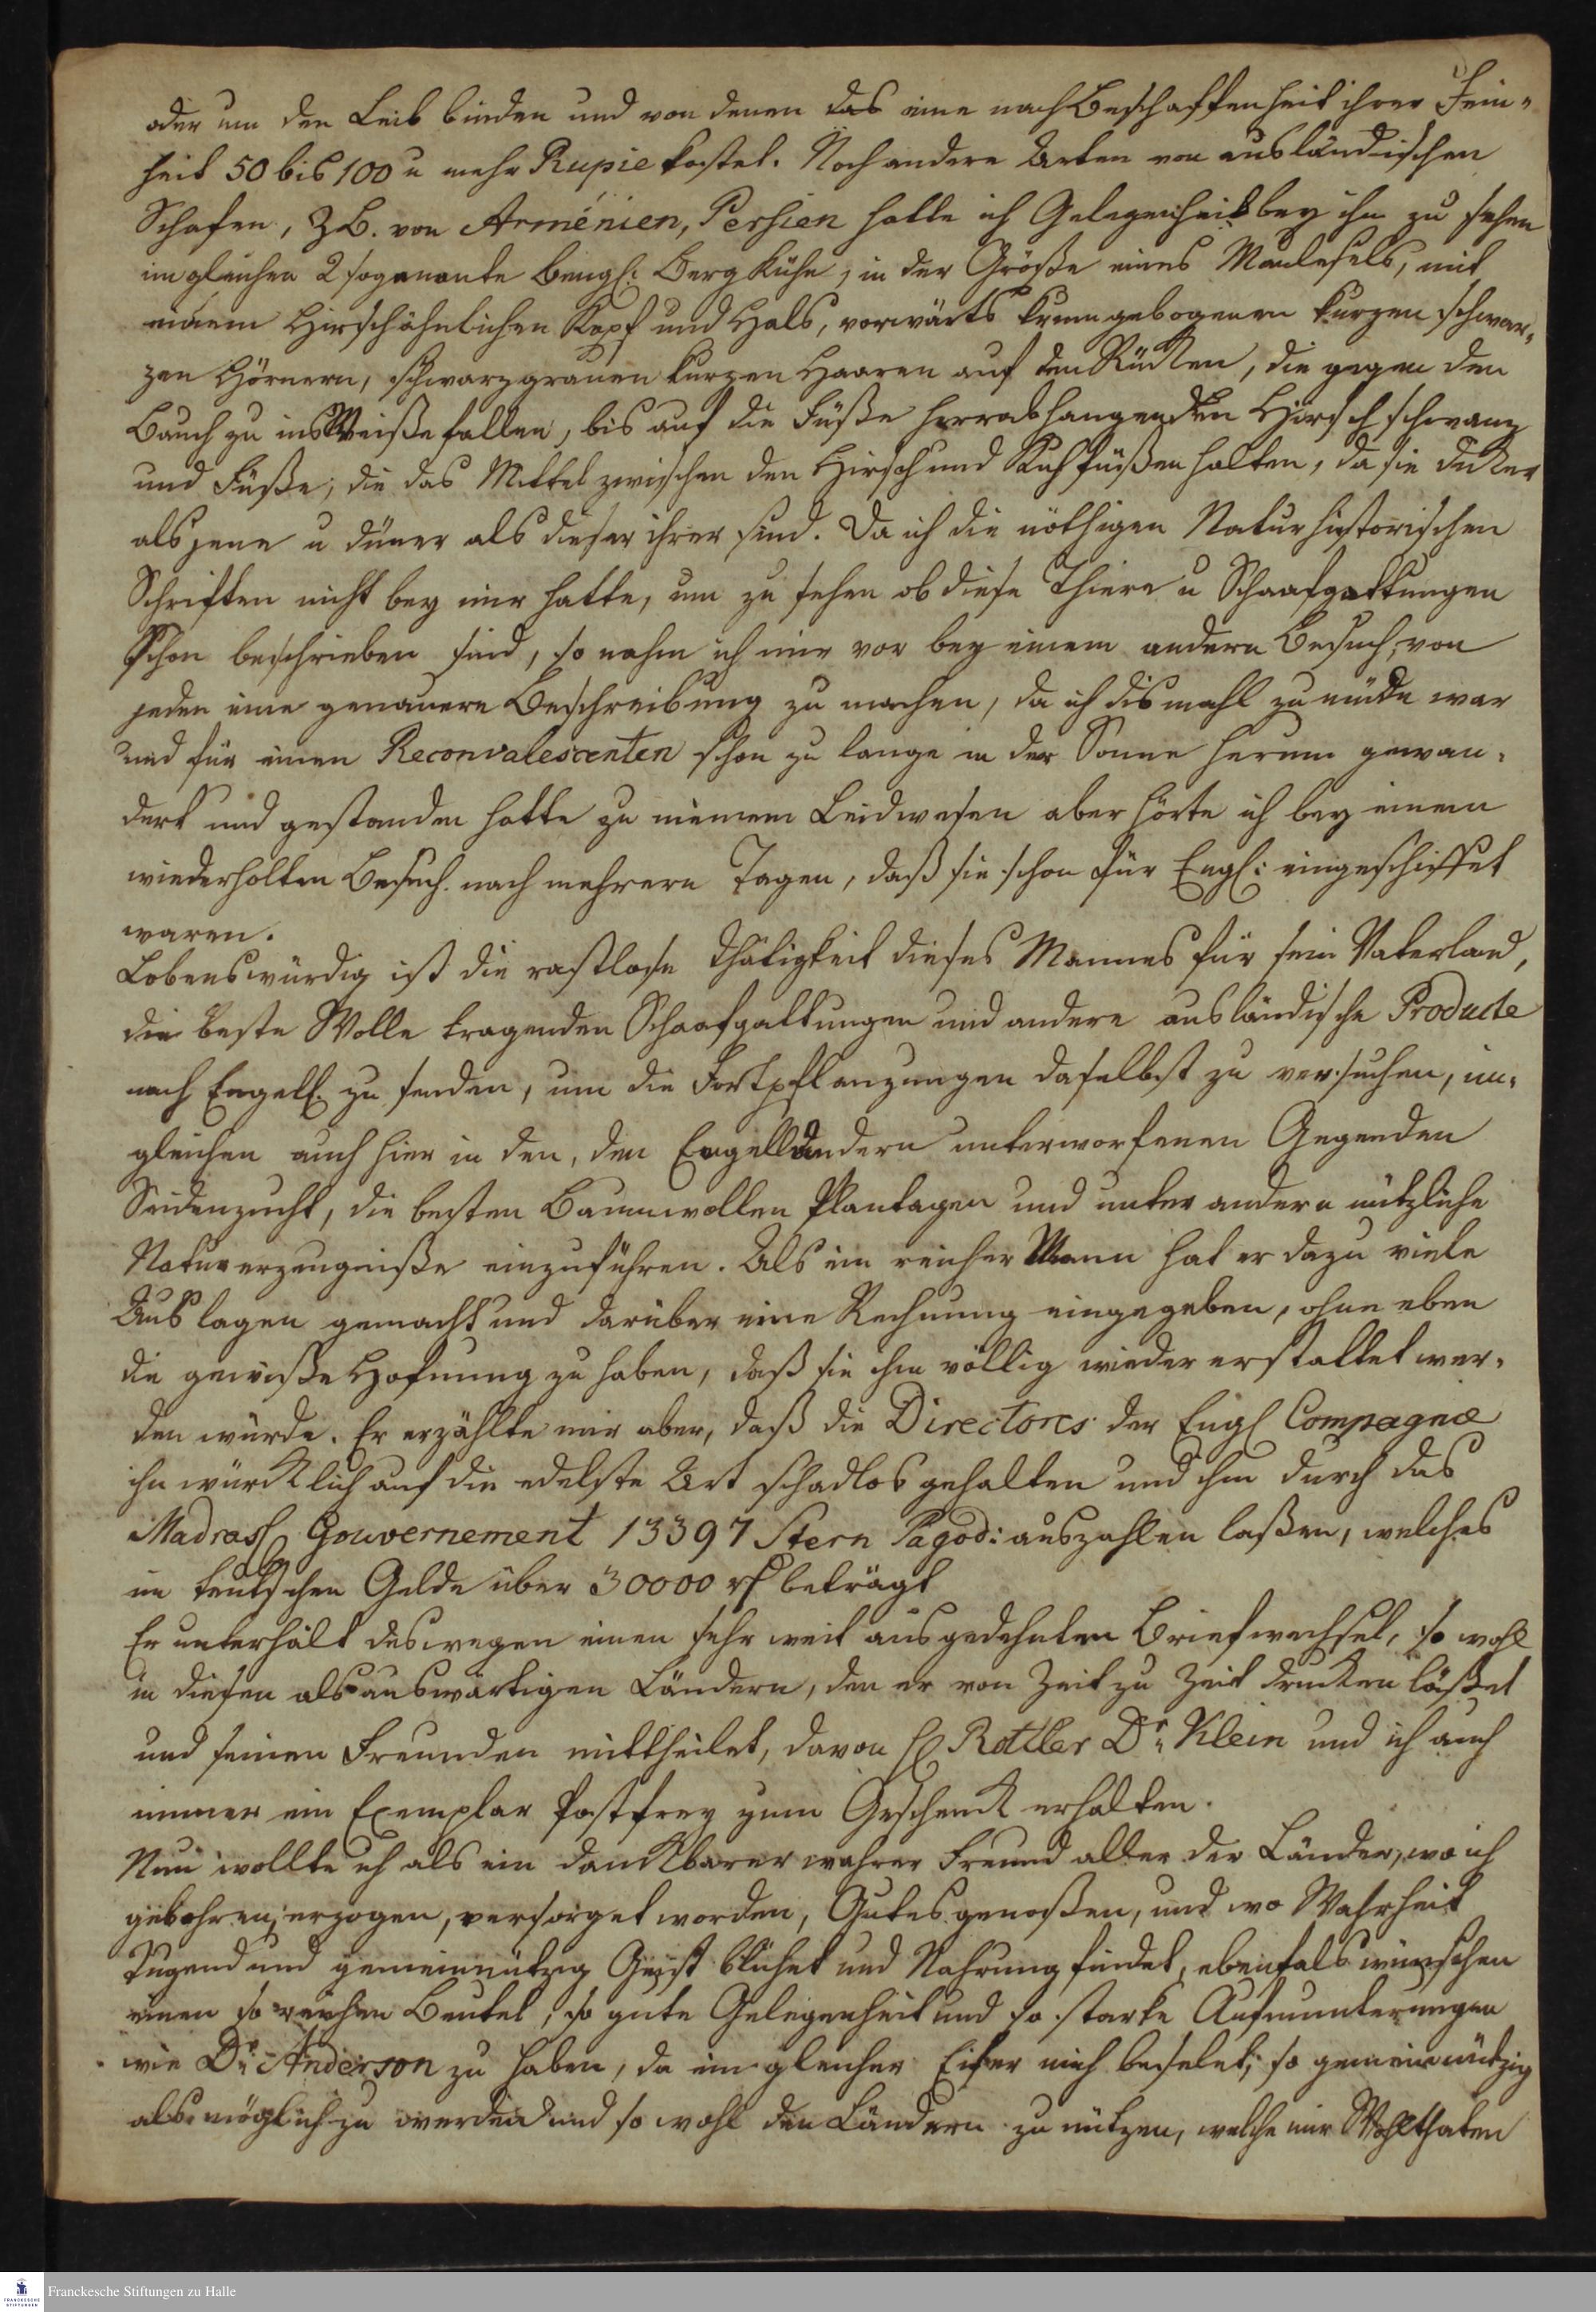 oder um den Leib binden und von denen das eine nach Beschaffenheit ihrer Fein-
heit 50 bis 100 u mehr Rupie kostet. Noch andere Arten von ausländischen
Schafen, Z B. von Arménien, Persien hatte ich Gelegenheit bey ihm zu sehen
imgleichen 2 sogenante Bengl: Berg Kühe, in der Größe eines Maulesels, mit
einem Hirschähnlichen Kopf und Hals, vorwärts krumgebogenen kurzen schwar-
zen Hörnern, schwarzgrauen kurzen Haaren auf den Rücken, die gegen den
Bauch zu ins Weiße fallen, bis auf die Füße herrabhangenden Hirsch schwanz
und Füße, die das Mittel zwischen den Hirsch und Kuhfüßen halten, da sie dicker
als jene u düner als dieser ihrer sind. Da ich die nöthigen Naturhistorischen
Schriften nicht bey mir hatte, um zu sehen ob diese Thiere u Schaafgattungen
schon beschrieben sind, so nahm ich mir vor bey einem andern Besuch, von
jeden eine genauere Beschreibung zu machen, da ich dismahl zu müde war
und für einen Reconvalescenten schon zu lange in der Sonne herum gewan-
dert und gestanden hatte zu meinem Leidwesen aber hörte ich bey einem
wiederholten Besuch nach mehrern Tagen, daß sie schon für Engl: eingeschiffet
waren.
Lobenswürdig ist die rastlose Thätigkeit dieses Mannes für sein Vaterland,
die beste Wolle tragenden Schaafgattungen und andere ausländische Producte
nach Engell. zu senden, um die Fortpflanzungen daselbst zu versuchen, im-
gleichen auch hier in den, den Engelländern unterworfenen Gegenden
Seidenzucht, die besten Baumwollen Plantagen und unter andern nützliche
Naturerzeugniße einzuführen. Als ein reicher Mann hat er dazu viele
Auslagen gemacht und darüber eine Rechnung eingegeben, ohne eben
die gewisse Hofnung zu haben, daß sie ihm völlig wieder erstattet wer-
den würde. Er erzählte mir aber, daß die Directors der Engl Compagnie
ihn würcklich auf die edelste Art schadlos gehalten und ihm durch das
Madrass Gouvernement 13397 Stern Pagod: auszahlen laßen, welches
im teutschen Gelde über 30000 rl beträgt
Er unterhält deswegen einen sehr weit ausgedehnten Briefwechsel, so wohl
in diesen als auswärtigen Ländern, den er von Zeit zu Zeit drucken läßet
und seinen Freunden mittheilet, davon H Rottler Dr. Klein und ich auch
immer ein Exemplar Postfrey zum Geschenck erhalten.
Nun wollte ich als ein danckbarer wahrer Freund aller der Länder, wo ich
gebohren, erzogen, versorget worden, Gutes genoßen, und wo Wahrheit
Tugend und gemeinnützig Geist blühet und Nahrung findet, ebenfals wünschen
einen so reichen Beutel, so gute Gelegenheit und so starke Aufmunterungen
wie Dr. Anderson zu haben, da ein gleicher Eifer mich beselet, so gemeinnützig
als möglich zu werden und so wohl den Ländern zu nützen, welche mir Wohlthaten
Franckesche Stiftungen zu Halle